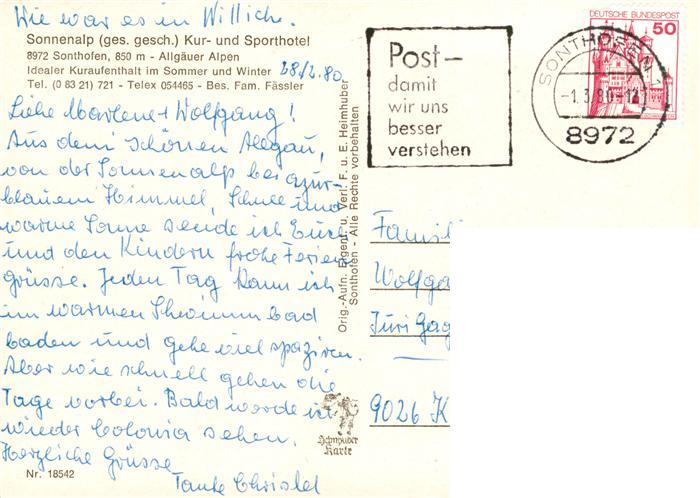 Wie war es in Willich.
Sonnenalp (ges. gesch.) Kur- und Sporthotel
8972 Sonthofen, 850 m - Allgäuer Alpen
Idealer Kuraufenthalt im Sommer und Winter
Tel. (0 83 21) 721 - Telex 054465 - Bes. Fam. Fässler
28/2.80
Liebe Marlene + Wolfgang!
Aus dem schönen Allgäu,
von der Sonnenalp bei azur-
blauem Himmel, Schnee und
warme Sonne sende ich Euch
und den Kindern frohe Ferien
grüsse. Jeden Tag kann ich
im warmen Schwimmbad
baden und gehe viel spaziren.
Aber wie schnell gehen die
Tage vorbei. Bald werde ich
wieder Colonia sehen.
Herzliche Grüsse
Tante Christel
Nr. 18542
Orig.-Aufn. Eigent. u. Verl. F. u. E. Heimhuber
Sonthofen - Alle Rechte vorbehalten
Schnauder
Karte
Post-
damit
wir uns
besser
verstehen
SONTHOFEN 1
-1.3.80-12
8972
DEUTSCHE BUNDESPOST
50
Famil
Wolfga
Juri Gag
9026 K